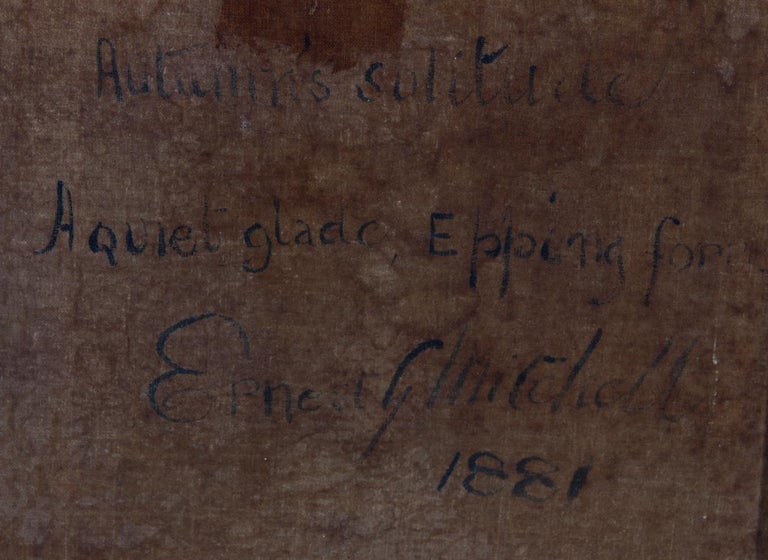 Autumn's solitude
A quiet glade, Epping fores
Ernest G Mitchell
1881